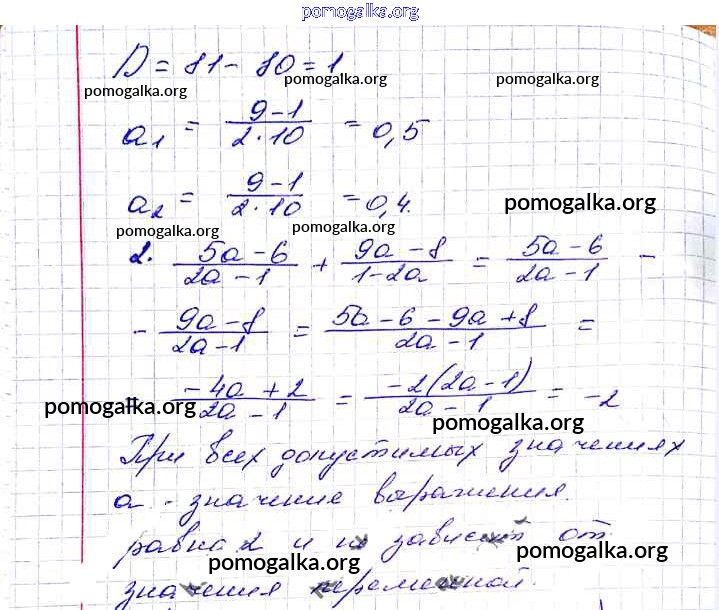 pomogalka.org
D = 81 - 80 = 1
pomogalka.org pomogalka.org pomogalka.org
a₁ = (9-1)/(2·10) = 0,5
a₂ = (9-1)/(2·10) = 0,4. pomogalka.org
pomogalka.org
2. (5a-6)/(2a-1) + (9a-8)/(1-2a) = (5a-6)/(2a-1) -
pomogalka.org
- (9a-8)/(2a-1) = (5a-6-9a+8)/(2a-1) =
= (-4a+2)/(2a-1) = (-2(2a-1))/(2a-1) = -2
pomogalka.org pomogalka.org
При всех допустимых значениях
a - значение выражения.
равна 2 и не зависит от
pomogalka.org pomogalka.org
значения переменной.